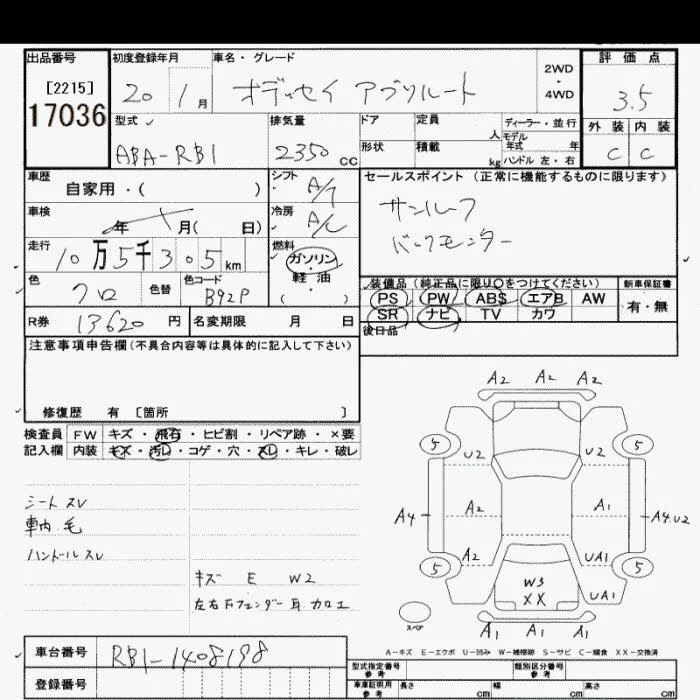 出品番号 初度登録年月 車名・グレード 2WD・4WD 評価点
[2215] 20 1月 オデッセイ アブソルート 3.5
17036
型式 排気量 ドア 定員 人 ディーラー・並行 外装 内装
モデル年式 年
ABA-RB1 2350cc 形状 積載 kg ハンドル 左・右 C C
車歴 シフト セールスポイント(正常に機能するものに限ります)
自家用・( ) A/T サンルーフ
車検 年 月( 日) 冷房 A/C バックモニター
走行 10万5千305km 燃料 ガソリン・軽油・( )
色 クロ 色替 色コード B92P
装備品(純正品に限り○をつけてください) 新車保証書
PS PW ABS エアB AW 有・無
SR ナビ TV カワ
後日品
R券 13620円 名変期限 月 日
注意事項申告欄(不具合内容等は具体的に記入して下さい)
修復歴 有 [箇所 ]
検査員 FW キズ・飛石・ヒビ割・リペア跡・×要
記入欄 内装 キズ・汚レ・コゲ・穴・スレ・キレ・破レ
シート スレ
車内 毛
ハンドル スレ
キズ E W2
左右Fフェンダー耳カロエ
A2 A2 A2
5 5
U2 U2
A4 A2 A1 A4.U2
A2 UA1
5 5
W3
XX UA1
スペア
A1 A1 A1
A-キズ E-エクボ U-凹み W-補修跡 S-サビ C-腐食 XX-交換済
車台番号 RB1-1408198
登録番号
型式指定番号 参考 類別区分番号 参考
車庫証明用 参考 長さ cm 幅 cm 高さ cm